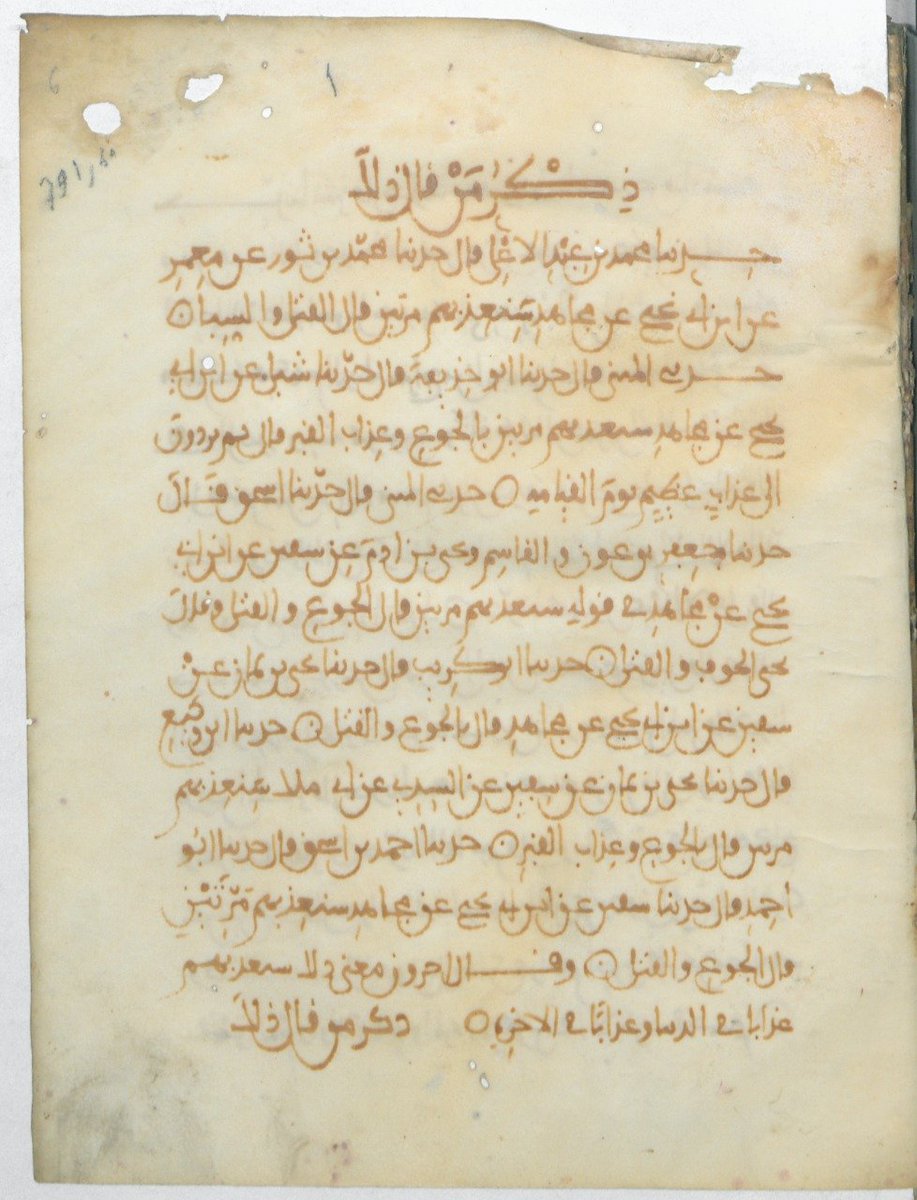 6
ذِكْرُ مَنْ قال ذلك
حدثنا محمد بن عبد الاعلى قال حدثنا محمد بن ثور عن معمر
عن ابن ابي نجيح عن مجاهد سنعذبهم مرتين قال القتل والسبا
حدثني المثنى قال حدثنا ابو حذيفة قال حدثنا شبل عن ابن ابي
نجيح عن مجاهد سنعذبهم مرتين بالجوع وعذاب القبر قال ثم يردون
الى عذاب عظيم يوم القيامة حدثني المثنى قال حدثنا اسحق قال
حدثنا جعفر بن عون والقاسم ويحيى بن ادم عن سفين عن ابن ابي
نجيح عن مجاهد في قوله سنعذبهم مرتين قال الجوع والقتل وقال
يحيى الخوف والقتل حدثنا ابو كريب قال حدثنا يحيى بن يمان عن
سفين عن ابن ابي نجيح عن مجاهد قال بالجوع والقتل حدثنا ابن وكيع
قال حدثنا يحيى بن يمان عن سفين عن السدي عن ابي ملك سنعذبهم
مرتين قال بالجوع وعذاب القبر حدثنا احمد بن اسحق قال حدثنا ابو
احمد قال حدثنا سفين عن ابن ابي نجيح عن مجاهد سنعذبهم مَرَّتَيْنِ
قال الجوع والقتل وقال اخرون معنى ذلك سنعذبهم
عذابا في الدنيا وعذابا في الاخرة ذكر من قال ذلك